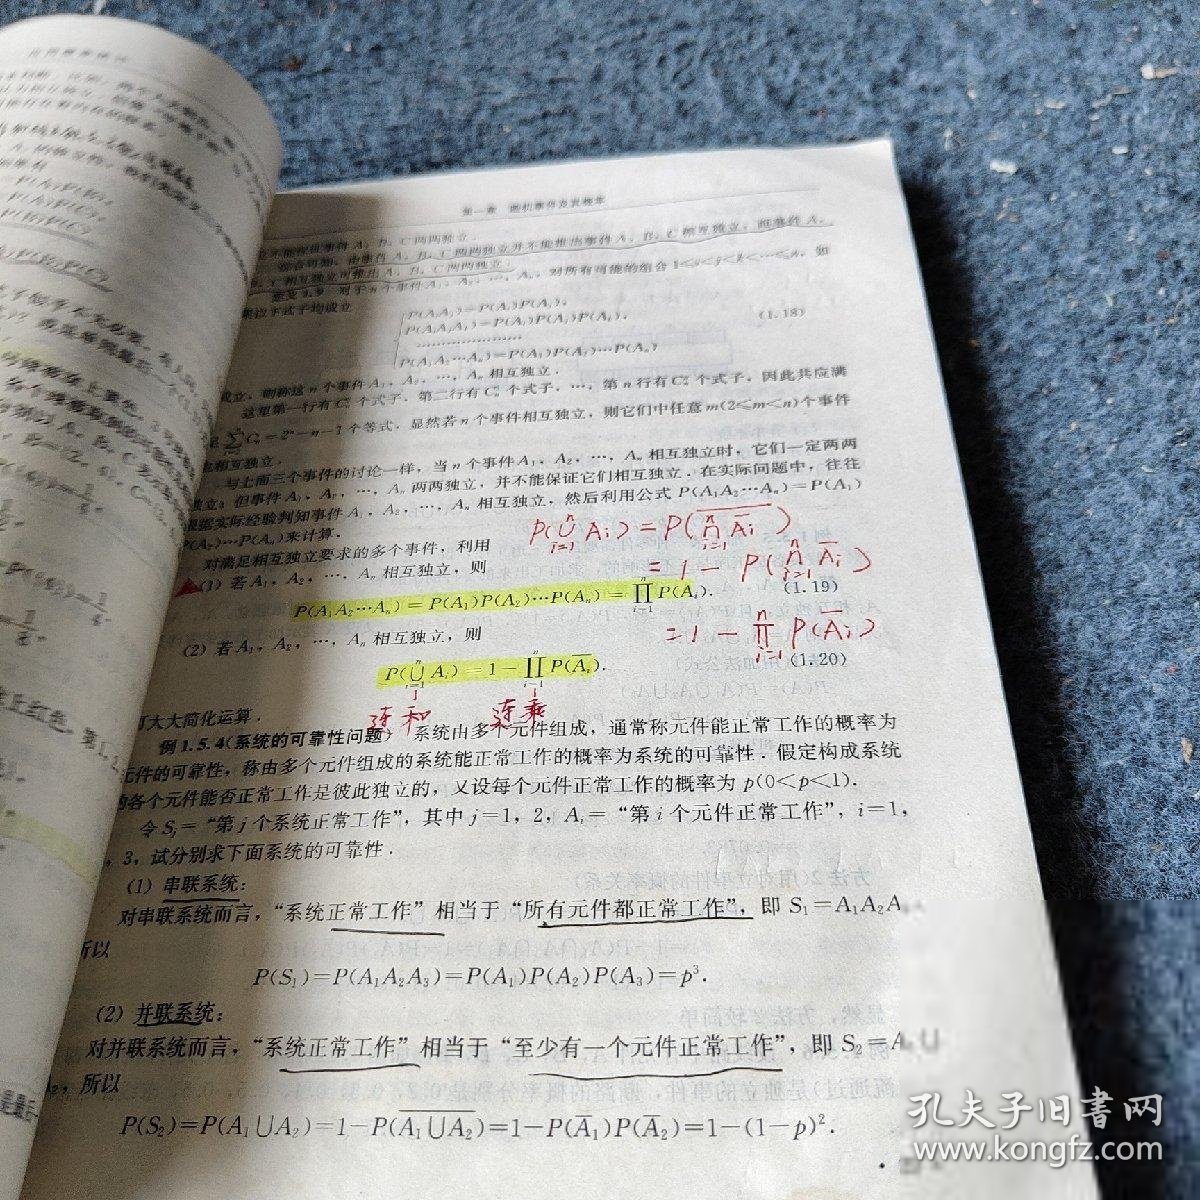 第一章 随机事件及其概率
不能保证事件A,B,C两两独立.
综合可知,由事件A,B,C两两独立并不能推出事件A,B,C相互独立,而事件A,
B,C相互独立可推出A,B,C两两独立.
定义1.9 对于n个事件A₁,A₂,…,Aₙ,对所有可能的组合1≤i<j<k<…≤n,如
果以下式子均成立
P(AᵢAⱼ)=P(Aᵢ)P(Aⱼ),
P(AᵢAⱼAₖ)=P(Aᵢ)P(Aⱼ)P(Aₖ),
…………………
P(A₁A₂…Aₙ)=P(A₁)P(A₂)…P(Aₙ)
(1.18)
成立,则称这n个事件A₁,A₂,…,Aₙ相互独立.
这里第一行有Cₙ²个式子,第二行有Cₙ³个式子,…,第n行有Cₙⁿ个式子,因此共应满
=2ⁿ-n-1个等式.显然若n个事件相互独立,则它们中任意m(2≤m<n)个事件
也相互独立.
与上面三个事件的讨论一样,当n个事件A₁,A₂,…,Aₙ相互独立时,它们一定两两
独立;但事件A₁,A₂,…,Aₙ两两独立,并不能保证它们相互独立.在实际问题中,往往
根据实际经验判知事件A₁,A₂,…,Aₙ相互独立,然后利用公式P(A₁A₂…Aₙ)=P(A₁)
P(A₂)…P(Aₙ)来计算.
对满足相互独立要求的多个事件,利用
P(⋃ⁿᵢ₌₁ Aᵢ)=P(\overline{⋂ⁿᵢ₌₁ A̅ᵢ})
=1-P(⋂ⁿᵢ₌₁ A̅ᵢ)
=1-∏ⁿᵢ₌₁ P(A̅ᵢ)
(1) 若A₁,A₂,…,Aₙ相互独立,则
P(A₁A₂…Aₙ)=P(A₁)P(A₂)…P(Aₙ)=∏ⁿᵢ₌₁ P(Aᵢ). (1.19)
(2) 若A₁,A₂,…,Aₙ相互独立,则
P(⋃ⁿᵢ₌₁ Aᵢ)=1-∏ⁿᵢ₌₁ P(A̅ᵢ). (1.20)
连和 连乘
可大大简化运算.
例1.5.4(系统的可靠性问题) 系统由多个元件组成,通常称元件能正常工作的概率为
元件的可靠性,称由多个元件组成的系统能正常工作的概率为系统的可靠性.假定构成系统
的各个元件能否正常工作是彼此独立的,又设每个元件正常工作的概率为p(0<p<1).
令Sⱼ=“第j个系统正常工作”,其中j=1,2,Aᵢ=“第i个元件正常工作”,i=1,
,3,试分别求下面系统的可靠性.
(1) 串联系统:
对串联系统而言,“系统正常工作”相当于“所有元件都正常工作”,即S₁=A₁A₂A
所以
P(S₁)=P(A₁A₂A₃)=P(A₁)P(A₂)P(A₃)=p³.
(2) 并联系统:
对并联系统而言,“系统正常工作”相当于“至少有一个元件正常工作”,即S₂=A ∪
₂,所以
P(S₂)=P(A₁∪A₂)=1-P(\overline{A₁∪A₂})=1-P(A̅₁)P(A̅₂)=1-(1-p)².
孔夫子旧书网
www.kongfz.com